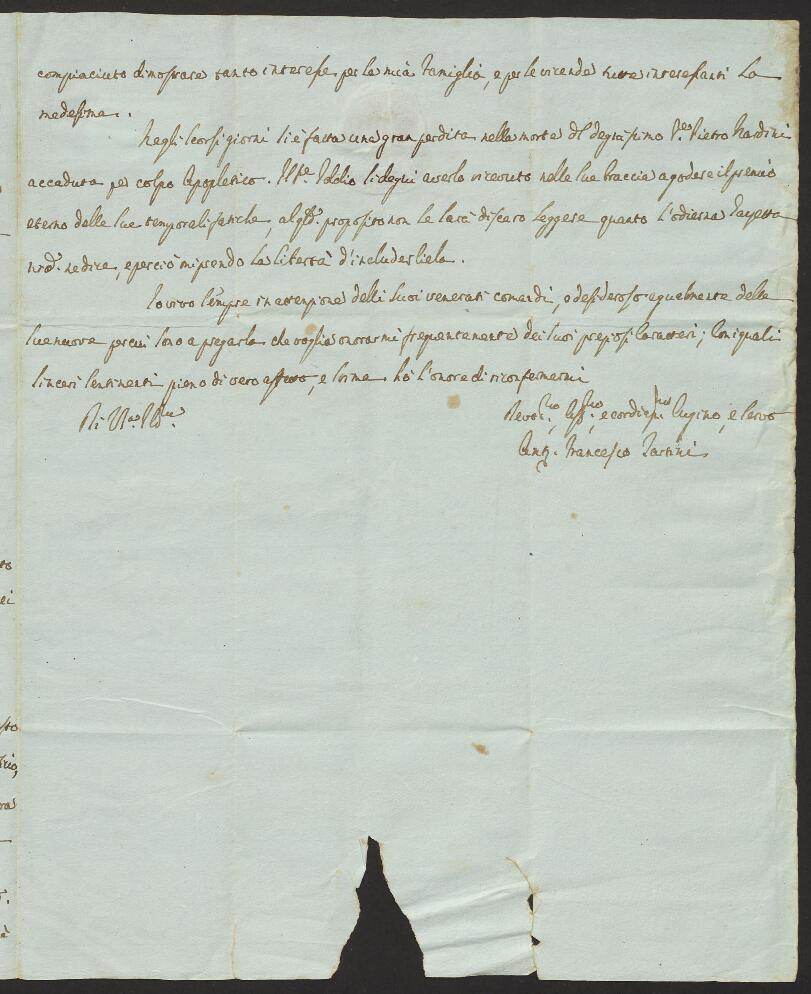 compiaciuto dimostrare tanto interesse per la mia Famiglia, e per le vicende tutte interessanti La
medesima.
Negli scorsi giorni si è fatta una gran perdita nella morte del degnissimo Sig.re Pietro Nardini
accaduta per colpo Apopletico. Iddio si degni averlo ricevuto nelle sue braccia a godere il premio
eterno delle sue temporali fatiche, al qle. proposito non le sarà discaro leggere quanto l'odierna Gazzetta
ne dice, e perciò mi prendo la libertà d'includerliela.
Io vivo sempre in attenzione delli suoi venerati comandi, e desideroso egualmente delle
sue nuove per cui sono a pregarla che voglia onorarmi frequentemente dei suoi preziosi Caratteri; Con i quali
sinceri sentimenti pieno di vero affetto, e stima hò l'onore di riconfermarmi
Di V.S. Ill.ma
Devot.mo, Aff.mo, e cordialis.mo Cugino, e Servo
Ant. Francesco Tartini
to
ei
sto
rio,
ra
è